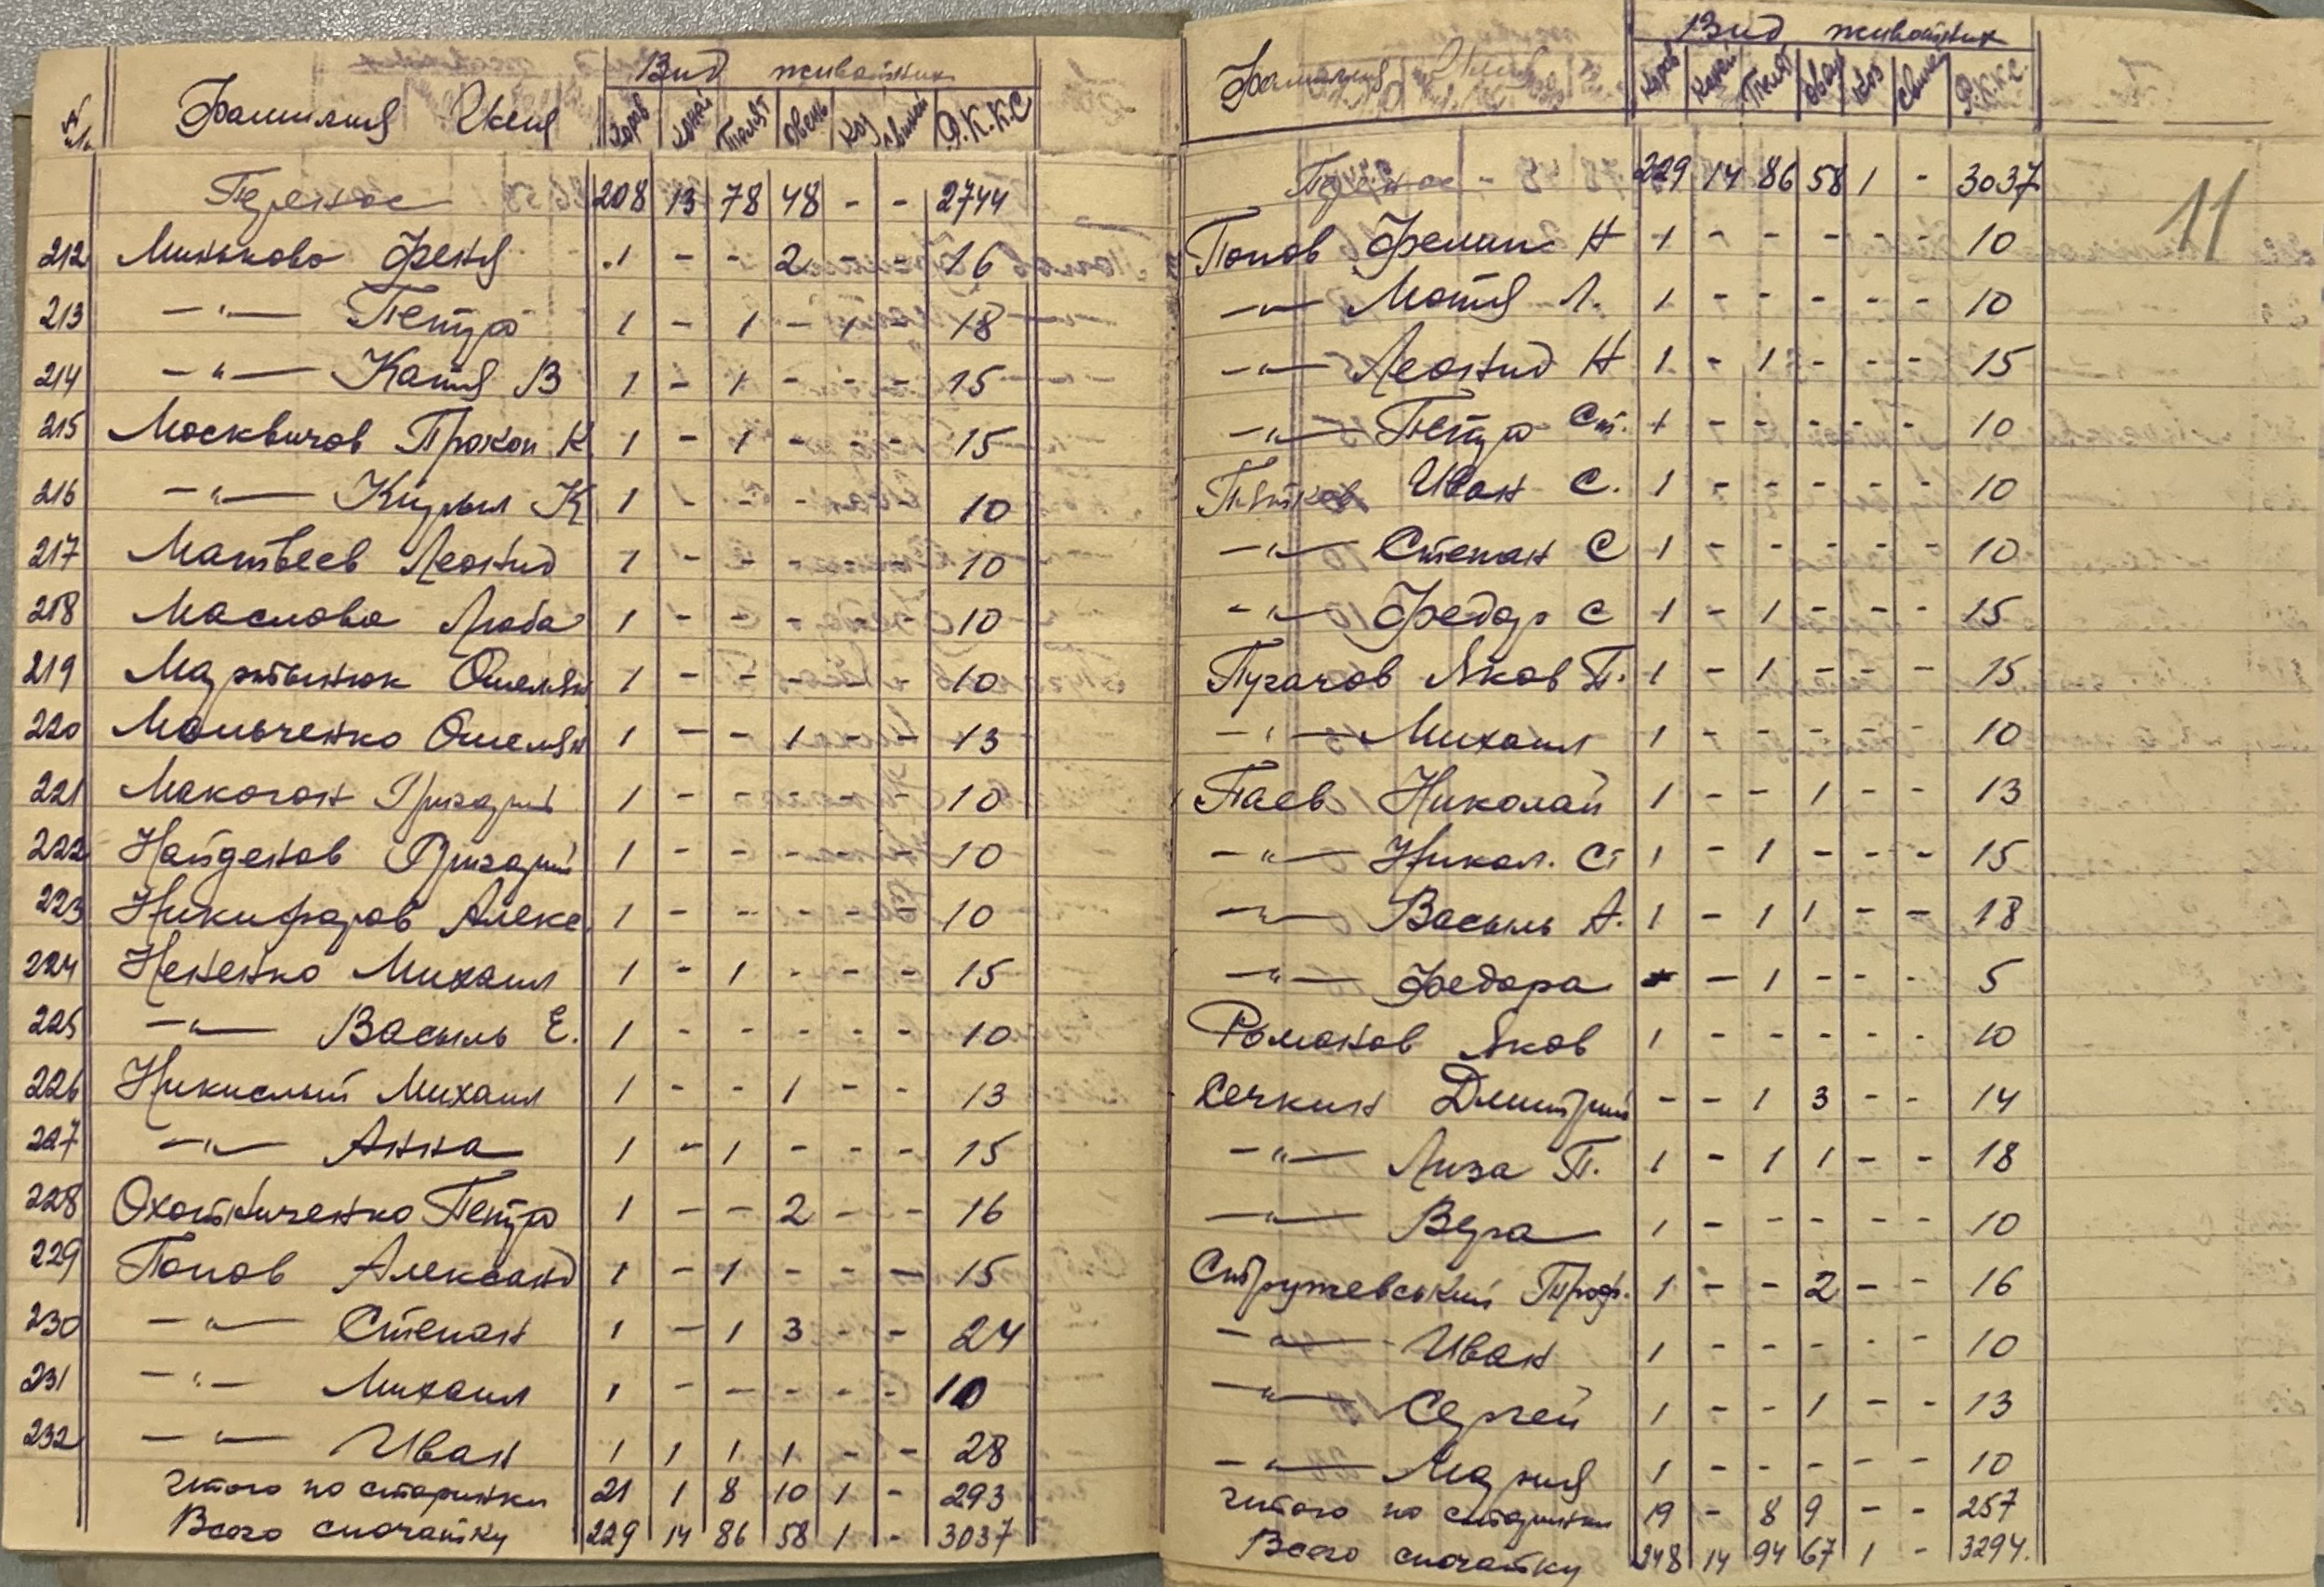 Вид животных
№ п/п Фамилия Имя Коров Коней Телят Овець Коз свиней Ф.К.К.С
Перенос 208 13 78 48 - - 2744
212 Минькова Феня 1 - - 2 - - 16
213 -"- Петро 1 - 1 - 1 - 18
214 -"- Катя В 1 - 1 - - - 15
215 Москвичов Прокоп К 1 - 1 - - - 15
216 -"- Кирыл К 1 - - - - - 10
217 Матвеев Леонид 1 - - - - - 10
218 Маслова Люба 1 - - - - - 10
219 Мартынюк Омелян 1 - - - - - 10
220 Мальченко Омелян 1 - - 1 - - 13
221 Макогон Григорий 1 - - - - - 10
222 Найденов Григорий 1 - - - - - 10
223 Никифоров Алекс 1 - - - - - 10
224 Нененко Михаил 1 - 1 - - - 15
225 -"- Васыль Е. 1 - - - - - 10
226 Никислый Михаил 1 - - 1 - - 13
227 -"- Анна 1 - 1 - - - 15
228 Охотниченко Петро 1 - - 2 - - 16
229 Попов Александ 1 - 1 - - - 15
230 -"- Степан 1 - 1 3 - - 24
231 -"- Михаил 1 - - - - - 10
232 -"- Иван 1 1 1 1 - - 28
Итого по старинки 21 1 8 10 1 - 293
Всего спочатку 229 14 86 58 1 - 3037
Вид животных
Фамилия Имя Коров Коней Телят Овець Коз Свиней Ф.К.К.С.
11
Перенос - 229 14 86 58 1 - 3037
Попов Фелип Н 1 - - - - - 10
-"- Мотя Л. 1 - - - - - 10
-"- Леонид Н 1 - 1 - - - 15
-"- Петро Ст. 1 - - - - - 10
Пятков Иван С. 1 - - - - - 10
-"- Степан С 1 - - - - - 10
-"- Федор С 1 - 1 - - - 15
Пугачов Яков П. 1 - 1 - - - 15
-"- Михаил 1 - - - - - 10
Паев Николай 1 - - 1 - - 13
-"- Никол. Ст 1 - 1 - - - 15
-"- Васыль А. 1 - 1 1 - - 18
-"- Федора - - 1 - - - 5
Романов Яков 1 - - - - - 10
Сечкин Дмитрий - - 1 3 - - 14
-"- Лиза П. 1 - 1 1 - - 18
-"- Вера 1 - - - - - 10
Стружевський Проф. 1 - - 2 - - 16
-"- Иван 1 - - - - - 10
-"- Сергей 1 - - 1 - - 13
-"- Мария 1 - - - - - 10
Итого по старинки 19 - 8 9 - - 257
Всего спочатку 248 14 94 67 1 - 3294.